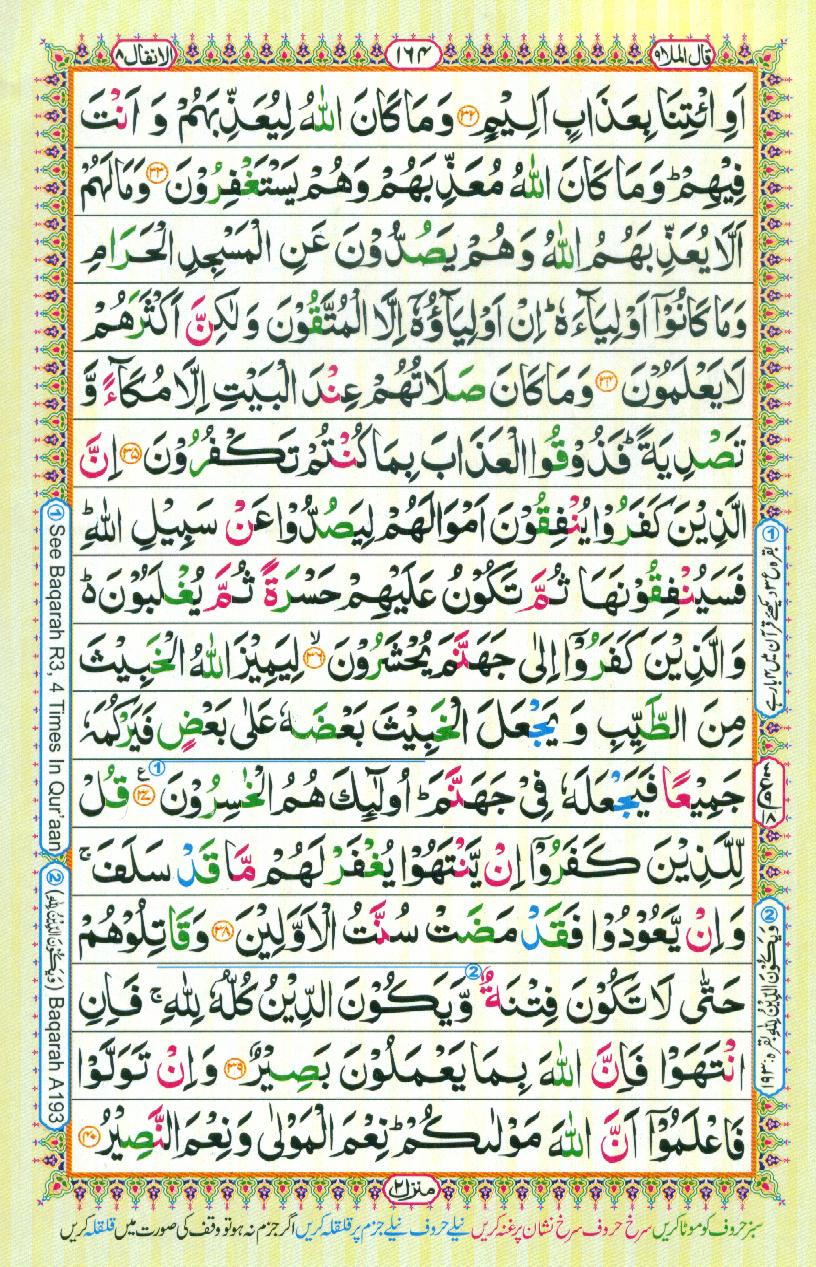 قال الملا۹
۱۶۴
الانفال۸
اَوِ ائْتِنَا بِعَذَابٍ اَلِيْمٍ ﴿۳۲﴾ وَمَا كَانَ اللّٰهُ لِيُعَذِّبَهُمْ وَ اَنْتَ
فِيْهِمْ ؕ وَمَا كَانَ اللّٰهُ مُعَذِّبَهُمْ وَهُمْ يَسْتَغْفِرُوْنَ ﴿۳۳﴾ وَمَا لَهُمْ
اَلَّا يُعَذِّبَهُمُ اللّٰهُ وَهُمْ يَصُدُّوْنَ عَنِ الْمَسْجِدِ الْحَرَامِ
وَمَا كَانُوْۤا اَوْلِيَآءَهٗ ؕ اِنْ اَوْلِيَآؤُهٗۤ اِلَّا الْمُتَّقُوْنَ وَلٰكِنَّ اَكْثَرَهُمْ
لَا يَعْلَمُوْنَ ﴿۳۴﴾ وَمَا كَانَ صَلَاتُهُمْ عِنْدَ الْبَيْتِ اِلَّا مُكَآءً وَّ
تَصْدِيَةً ؕ فَذُوْقُوا الْعَذَابَ بِمَا كُنْتُمْ تَكْفُرُوْنَ ﴿۳۵﴾ اِنَّ
الَّذِيْنَ كَفَرُوْا يُنْفِقُوْنَ اَمْوَالَهُمْ لِيَصُدُّوْا عَنْ سَبِيْلِ اللّٰهِ ؕ
فَسَيُنْفِقُوْنَهَا ثُمَّ تَكُوْنُ عَلَيْهِمْ حَسْرَةً ثُمَّ يُغْلَبُوْنَ ؕ
وَالَّذِيْنَ كَفَرُوْۤا اِلٰى جَهَنَّمَ يُحْشَرُوْنَ ﴿۳۶﴾ۙ لِيَمِيْزَ اللّٰهُ الْخَبِيْثَ
مِنَ الطَّيِّبِ وَ يَجْعَلَ الْخَبِيْثَ بَعْضَهٗ عَلٰى بَعْضٍ فَيَرْكُمَهٗ
جَمِيْعًا فَيَجْعَلَهٗ فِيْ جَهَنَّمَ ؕ اُولٰٓئِكَ هُمُ الْخٰسِرُوْنَ ① ﴿۳۷﴾ع قُلْ
لِّلَّذِيْنَ كَفَرُوْۤا اِنْ يَّنْتَهُوْا يُغْفَرْ لَهُمْ مَّا قَدْ سَلَفَ ۚ
وَاِنْ يَّعُوْدُوْا فَقَدْ مَضَتْ سُنَّتُ الْاَوَّلِيْنَ ﴿۳۸﴾ وَقَاتِلُوْهُمْ
حَتّٰى لَا تَكُوْنَ فِتْنَةٌ ② وَّيَكُوْنَ الدِّيْنُ كُلُّهٗ لِلّٰهِ ۚ فَاِنِ
انْتَهَوْا فَاِنَّ اللّٰهَ بِمَا يَعْمَلُوْنَ بَصِيْرٌ ﴿۳۹﴾ وَاِنْ تَوَلَّوْا
فَاعْلَمُوْۤا اَنَّ اللّٰهَ مَوْلٰىكُمْ ؕ نِعْمَ الْمَوْلٰى وَنِعْمَ النَّصِيْرُ ﴿۴۰﴾
② وَيَكُوْنَ الدِّيْنُ لِلّٰهِ بقرہ: ۱۹۳
① See Baqarah R3, 4 Times In Qur'aan
② (وَيَكُوْنَ الدِّيْنُ لِلّٰهِ) Baqarah A193
منزل۲
سبز حروف کو موٹا کریں سرخ حروف سرخ نشان پر غنہ کریں نیلے حروف نیلے جزم پر قلقلہ کریں اگر جزم نہ ہو تو وقف کی صورت میں قلقلہ کریں